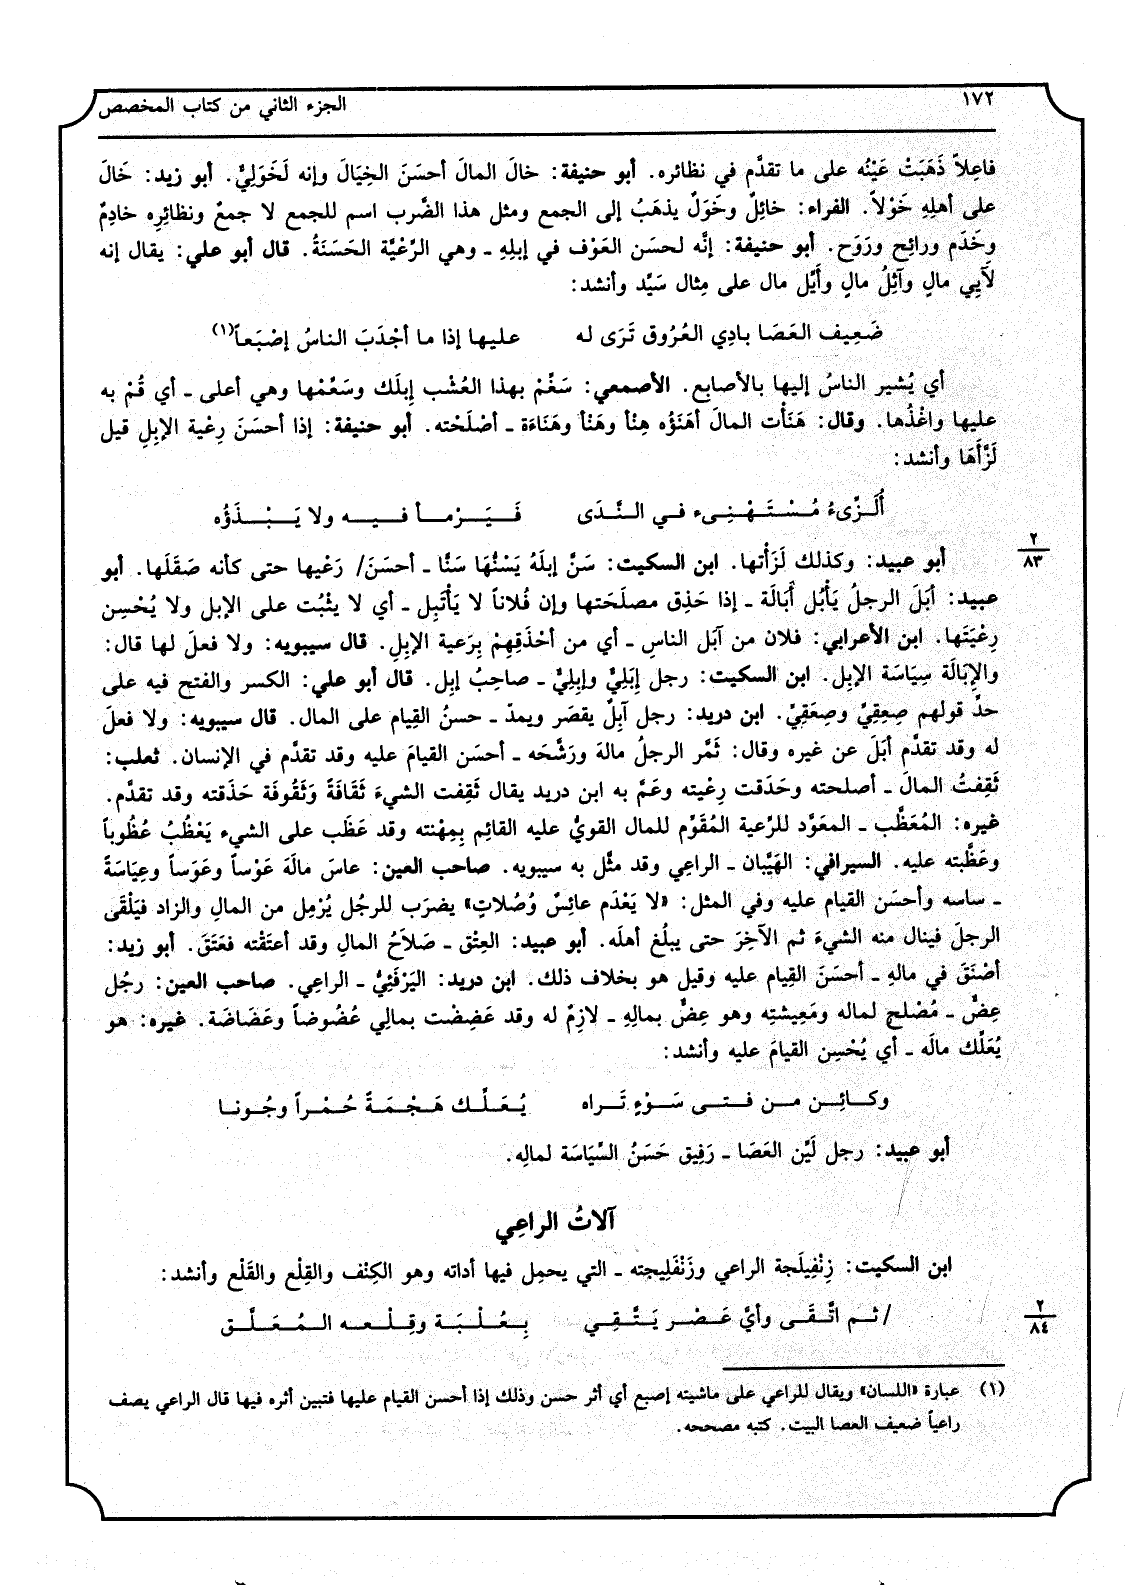 ١٧٢
الجزء الثاني من كتاب المخصص
فاعِلاً ذَهَبَتْ عَيْنُه على ما تقدَّم في نظائره. أبو حنيفة: خالَ المالَ أحسَنَ الخِيَالَ وإنه لَخَوَلِيٌّ. أبو زيد: خَالَ
على أهلِهِ خَوْلاً. الفراء: خائِلٌ وخَوَلٌ يذهَبُ إلى الجمع ومثل هذا الضَّرب اسم للجمع لا جمعٌ ونظائِرِه خادِمٌ
وخَدَم ورائِح ورَوَح. أبو حنيفة: إنَّه لحسَن العَوْف في إبلِهِ ـ وهي الرِّعْيَّة الحَسَنَةُ. قال أبو علي: يقال إنه
لآَيِي مالٍ وآئِلُ مالٍ وأَيِّل مال على مِثال سَيِّد وأنشد:
ضَعِيف العَصَا بادِي العُرُوق تَرَى له عليها إذا ما أجْدَبَ الناسُ إصْبَعاً(١)
أي يُشير الناسُ إليها بالأصابع. الأصمعي: سَغِّمْ بهذا العُشْب إبِلَك وسَعِّمْها وهي أعلى ـ أي قُمْ به
عليها واغْذُها. وقال: هَنَأْت المالَ أهنَؤُه هِنْأ وهَنْأ وهَنَاءَة ـ أصْلَحْته. أبو حنيفة: إذا أحسَنَ رِعْية الإبِلِ قيل
لَزَّأَهَا وأنشد:
أُلَزِّىءُ مُسْتَهْنِىء في النَّدَى فَيَرْمأ فيه ولا يَبْذَؤُه
٢
٨٣
أبو عبيد: وكذلك لَزَأْتها. ابن السكيت: سَنَّ إبلَهُ يَسْنُّهَا سَنًّا ـ أحسَنَ/ رَعْيها حتى كأنه صَقَلَها. أبو
عبيد: أبَلَ الرجلُ يَأْبُل أَبَالَة ـ إذا حَذِق مصلَحَتها وإن فُلاناً لا يَأْتَبِل ـ أي لا يثْبُت على الإبل ولا يُحْسِن
رِعْيَتَها. ابن الأعرابي: فلان من آبَل الناسِ ـ أي من أحْذَقِهِمْ بِرَعية الإبِلِ. قال سيبويه: ولا فعلَ لها قال:
والإبَالَة سِيَاسَة الإبِل. ابن السكيت: رجل إبَلِيٌّ وإبِلِيٌّ ـ صاحِبُ إبِل. قال أبو علي: الكسر والفتح فيه على
حدِّ قولهم صِعِقِيٌّ وصِعَقِيٌّ. ابن دريد: رجل آبِلٌ يقصَر ويمدّ ـ حسنُ القِيام على المال. قال سيبويه: ولا فعلَ
له وقد تقدَّم أبَلَ عن غيره وقال: ثَمَّر الرجلُ مالهَ ورَشَّحَه ـ أحسَن القيامَ عليه وقد تقدَّم في الإنسان. ثعلب:
ثَقِفتُ المالَ ـ أصلحته وحَذَقت رِعْيته وعَمَّ به ابن دريد يقال ثَقِفت الشيءَ ثَقَافَةً وَثَقُوفَة حَذَقته وقد تقدَّم.
غيره: المُعَظِّب ـ المعَوِّد للرِّعية المُقَوِّم للمال القويُّ عليه القائِم بِمِهْنته وقد عَظَب على الشيء يَعْظُبُ عُظُوباً
وعَظَّبته عليه. السيرافي: الهَيِّبان ـ الراعي وقد مثَّل به سيبويه. صاحب العين: عاسَ مالَهَ عَوْساً وعَوَساً وعِيَاسَةً
ـ ساسه وأحسَن القيام عليه وفي المثل: «لا يَعْدَم عائِسٌ وُصُلاتٍ» يضرَب للرجُل يُرْمِل من المالِ والزاد فيَلْقَى
الرجلَ فينال منه الشيءَ ثم الآخِرَ حتى يبلُغ أهلَه. أبو عبيد: العِتْق ـ صَلاَحُ المالِ وقد أعتَقْته فعَتَقَ. أبو زيد:
أصْنَقَ في مالهِ ـ أحسَنَ القِيام عليه وقيل هو بخلاف ذلك. ابن دريد: اليَرْفَئِيُّ ـ الراعِي. صاحب العين: رجُل
عِضٌّ ـ مُصْلح لماله ومَعِيشتِه وهو عِضٌّ بمالِهِ ـ لازِمٌ له وقد عَضِضْت بمالِي عُضُوضاً وعَضَاضَة. غيره: هو
يُعَلِّك مالَه ـ أي يُحْسِن القيامَ عليه وأنشد:
وكائِن من فتى سَوْءٍ تَراه يُعَلِّك هَجْمَةً حُمْراً وجُونا
أبو عبيد: رجل لَيِّن العَصَا ـ رَفِيق حَسَنُ السِّيَاسَة لمالِه.
آلاتُ الراعِي
ابن السكيت: زِنْفِيلَجة الراعي وزَنْفَلِيجته ـ التي يحمِل فيها أداته وهو الكِنْف والقِلْع والقَلْع وأنشد:
٢
٨٤
/ ثم اتَّقَى وأيَّ عَصْر يَتَّقِي بِعُلْبَة وقِلْعه المُعَلَّق
(١) عبارة «اللسان» ويقال للراعي على ماشيته إصبع أي أثر حسن وذلك إذا أحسن القيام عليها فتبين أثره فيها قال الراعي يصف
راعياً ضعيف العصا البيت. كتبه مصححه.